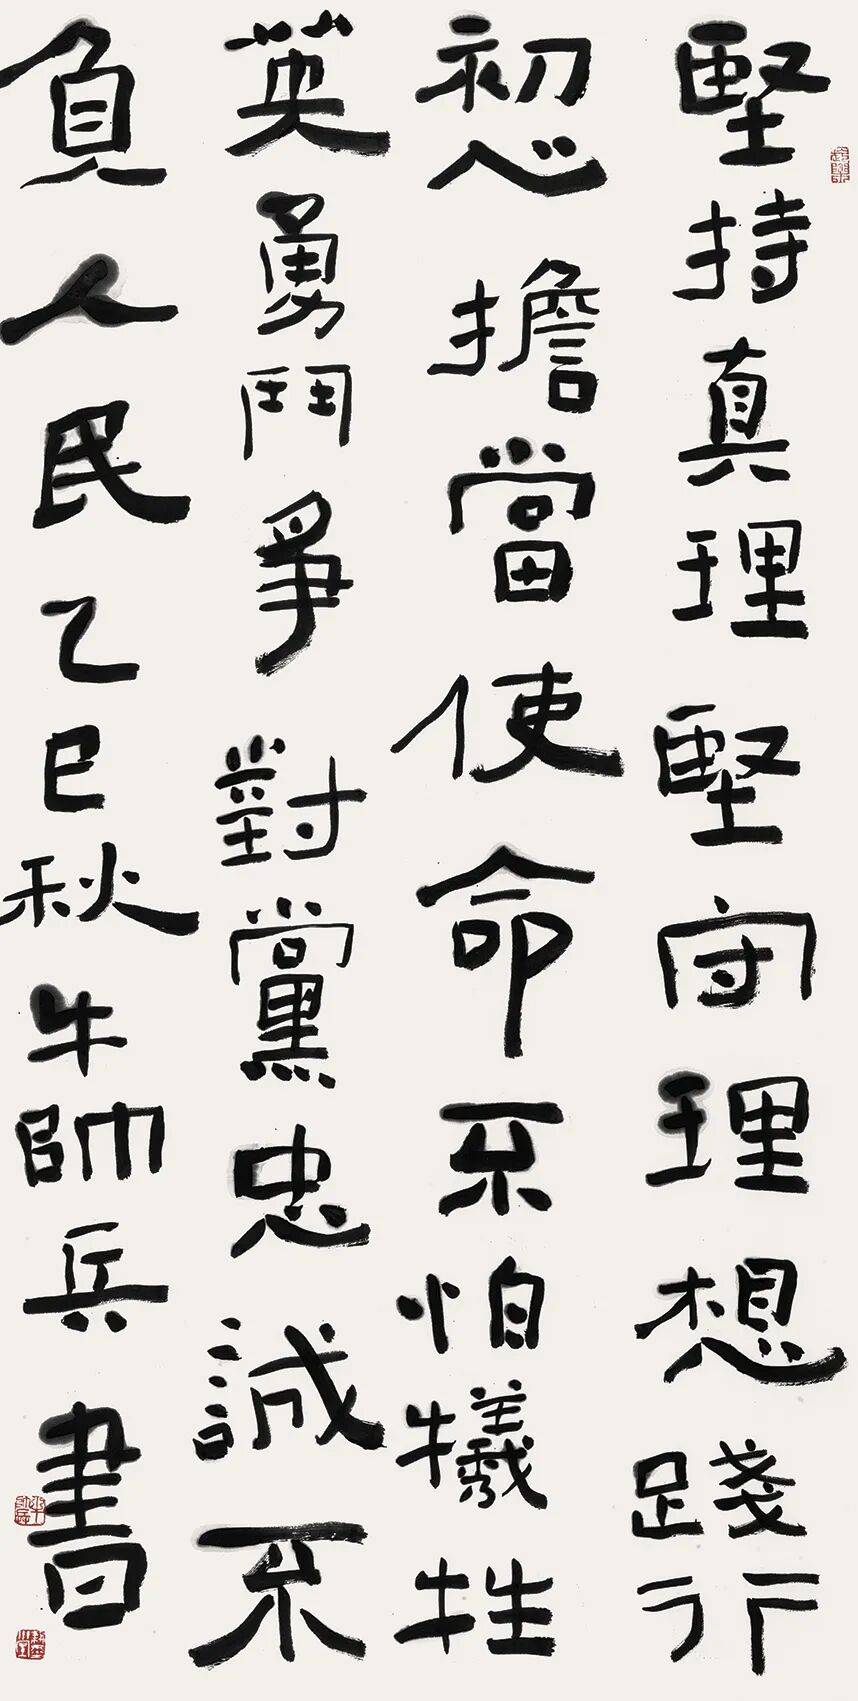 堅持真理堅守理想踐行
初心擔當使命不怕犧牲
英勇鬥爭對黨忠誠不
負人民乙巳秋牛帥兵書